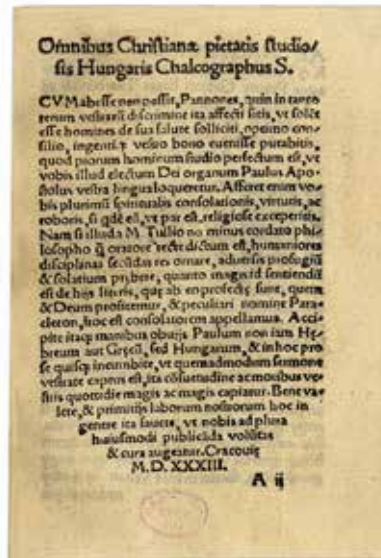 Omnibus Christianæ pietatis studio/
sis Hungaris Chalcographus S.
CVM abesse non possit, Pannones, quin in tanto
rerum vestrarū discrimine ita affecti sitis, vt solēt
esse homines de sua salute solliciti, optimo con-
silio, ingentiq; vestro bono euenisse putabitis,
quod piorum hominum studio perfectum est, vt
vobis illud electum Dei organum Paulus Apo-
stolus vestra lingua loqueretur. Afferet enim vo-
bis plurimū spiritualis consolationis, virtutis, ac
roboris, si qdē eū, vt par est, religiose exceperitis.
Nam si illud a M. Tullio no minus cordato phi-
losopho q̄ oratore recte dictum est, humaniores
disciplinas secūdas res ornare, aduersis profugiū
& solatium prębere, quanto magis id sentiendū
est de hijs literis, quę ab eo profectę sunt, quem
& Deum profitemur, & peculiari nomine Para-
cleton, hoc est consolatorem appellamus. Acci-
pite itaq; manibus obuijs Paulum non iam He-
breum aut Gręcū, sed Hungarum, & in hoc pro
se quisq; incumbite, vt quemadmodum sermone
vestrate captus est, ita cōsuetudine ac moribus ve-
stris quottidie magis ac magis capiatur. Bene va-
lete, & primitijs laborum nostrorum hoc in
genere ita fauete, vt nobis ad plura
huiusmodi publicāda volūtas
& cura augeatur. Cracouię
M. D. XXXIII.
A ij